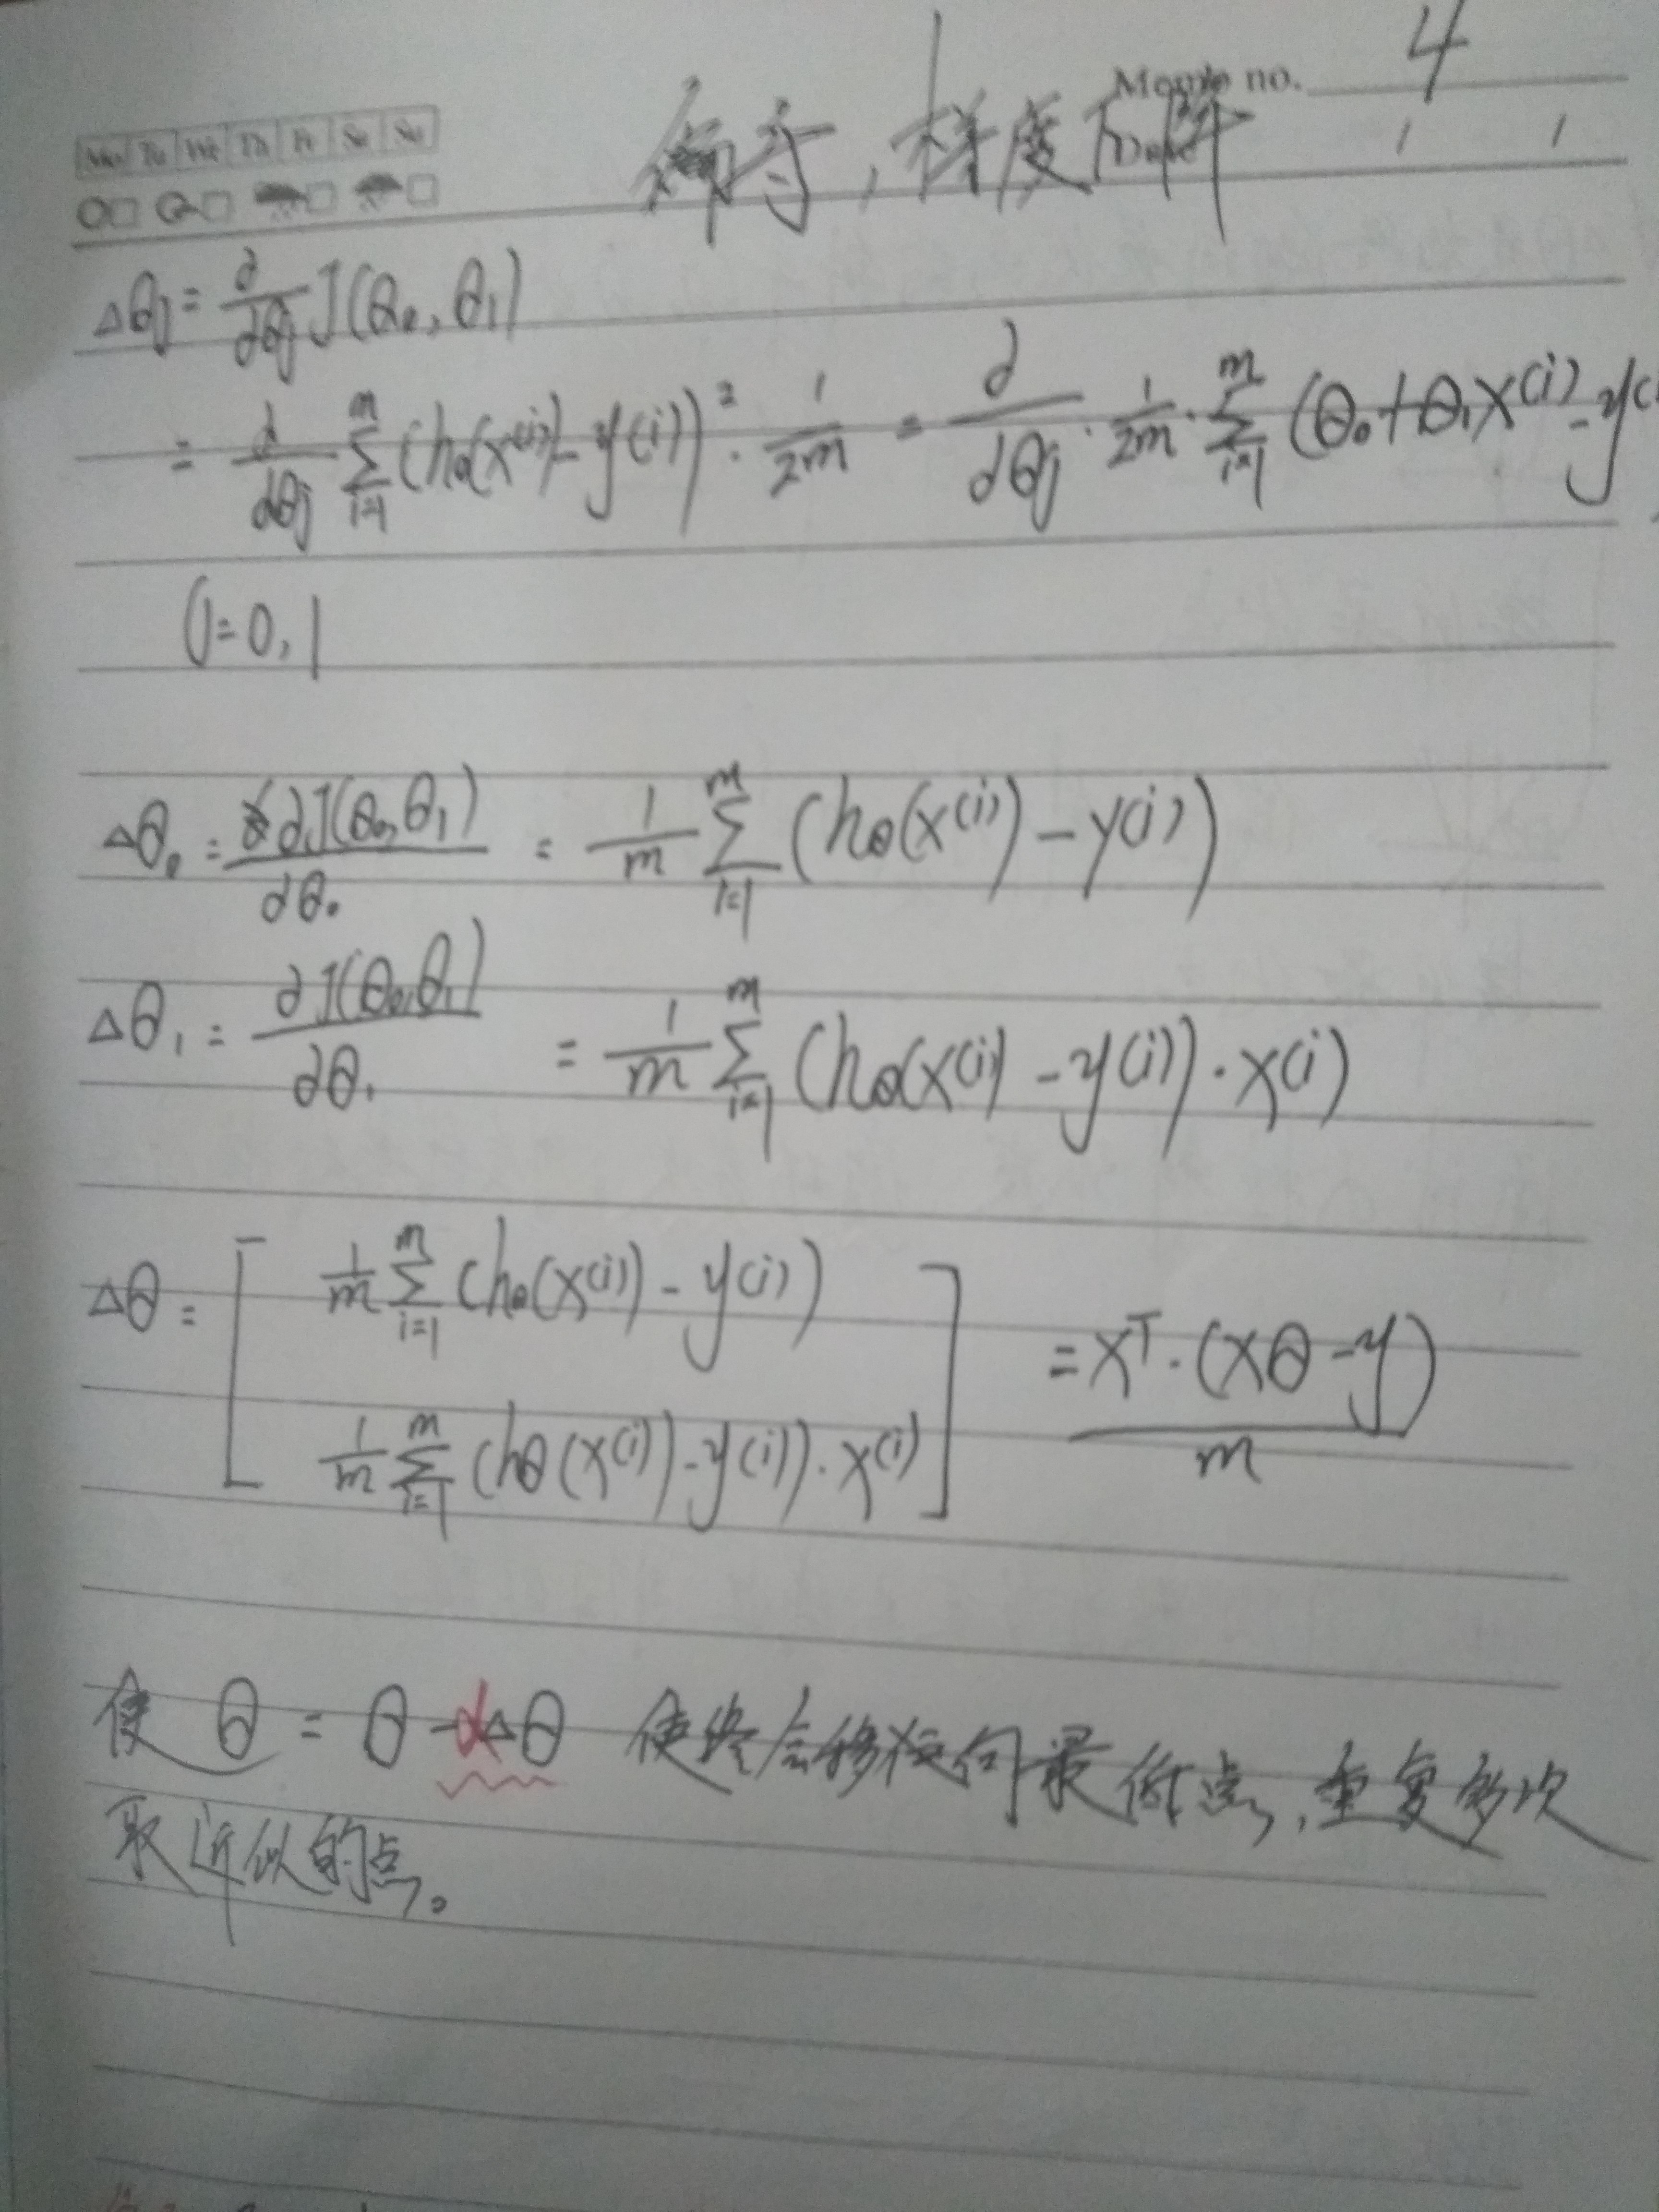 Memo no. 4
Mo Tu We Th Fr Sa Su
Date / /
偏导，梯度下降
Δθj = ∂/∂θj J(θ0, θ1)
= ∂/∂θj Σ i=1 m (hθ(x(i)) - y(i))² · 1/2m = ∂/∂θj · 1/2m · Σ i=1 m (θ0+θ1x(i) - y(
(j=0,1
Δθ0 = ∂J(θ0,θ1)/∂θ0 = 1/m Σ i=1 m (hθ(x(i)) - y(i))
Δθ1 = ∂J(θ0,θ1)/∂θ1 = 1/m Σ i=1 m (hθ(x(i) - y(i)) · x(i)
Δθ = [ 1/m Σ i=1 m (hθ(x(i)) - y(i))
1/m Σ i=1 m (hθ(x(i)) - y(i)) · x(i) ] = X^T · (Xθ - y) / m
使 θ = θ - αΔθ 使 向最低点，重复多次
取近似的点。